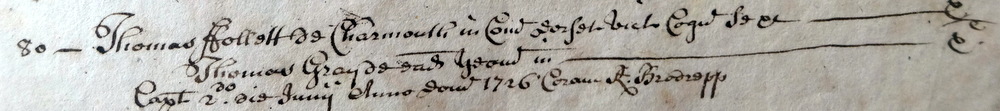 80 – Thomas ffollett de Charmouth in Com Dorset vict Cogn se xx
Thomas Gray de ead Yeom in x
Capt 2do die Junij Anno dom 1726 Coram R: Brodrepp